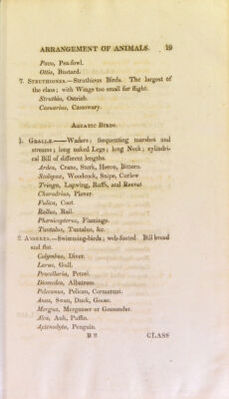 ARRANGEMENT OF ANIMALS. 19
Pavo, Pea-fowl.
Ottis, Bustard.
7. STRUTHIONES.—Struthious Birds. The largest of
the class; with Wings too small for flight.
Struthio, Ostrich.
Casuarius, Cassowary.
AQUATIC BIRDS.
1. GRALLÆ.—Waders; frequenting marshes and
streams; long naked Legs; long Neck; cylindri-
cal Bill of different lengths.
Ardea, Crane, Stork, Heron, Bittern.
Scolopax, Woodcock, Snipe, Curlew
Tringa, Lapwing, Ruffs, and Reeves
Charadrius, Plover.
Fulica, Coot.
Rallus, Rail.
Phœnicopterus, Flamingo.
Tantalus, Tantalus, &c.
2. ANSERES.—Swimming-birds; web-footed Bill broad
and flat.
Colymbus, Diver.
Larus, Gull.
Procellaria, Petrel.
Diomedea, Albatross.
Pelecanus, Pelican, Cormorant.
Anas, Swan, Duck, Goose.
Mergus, Merganser or Goosander.
Alca, Auk, Puffin.
Aptenodytes, Penguin.
B 2 CLASS